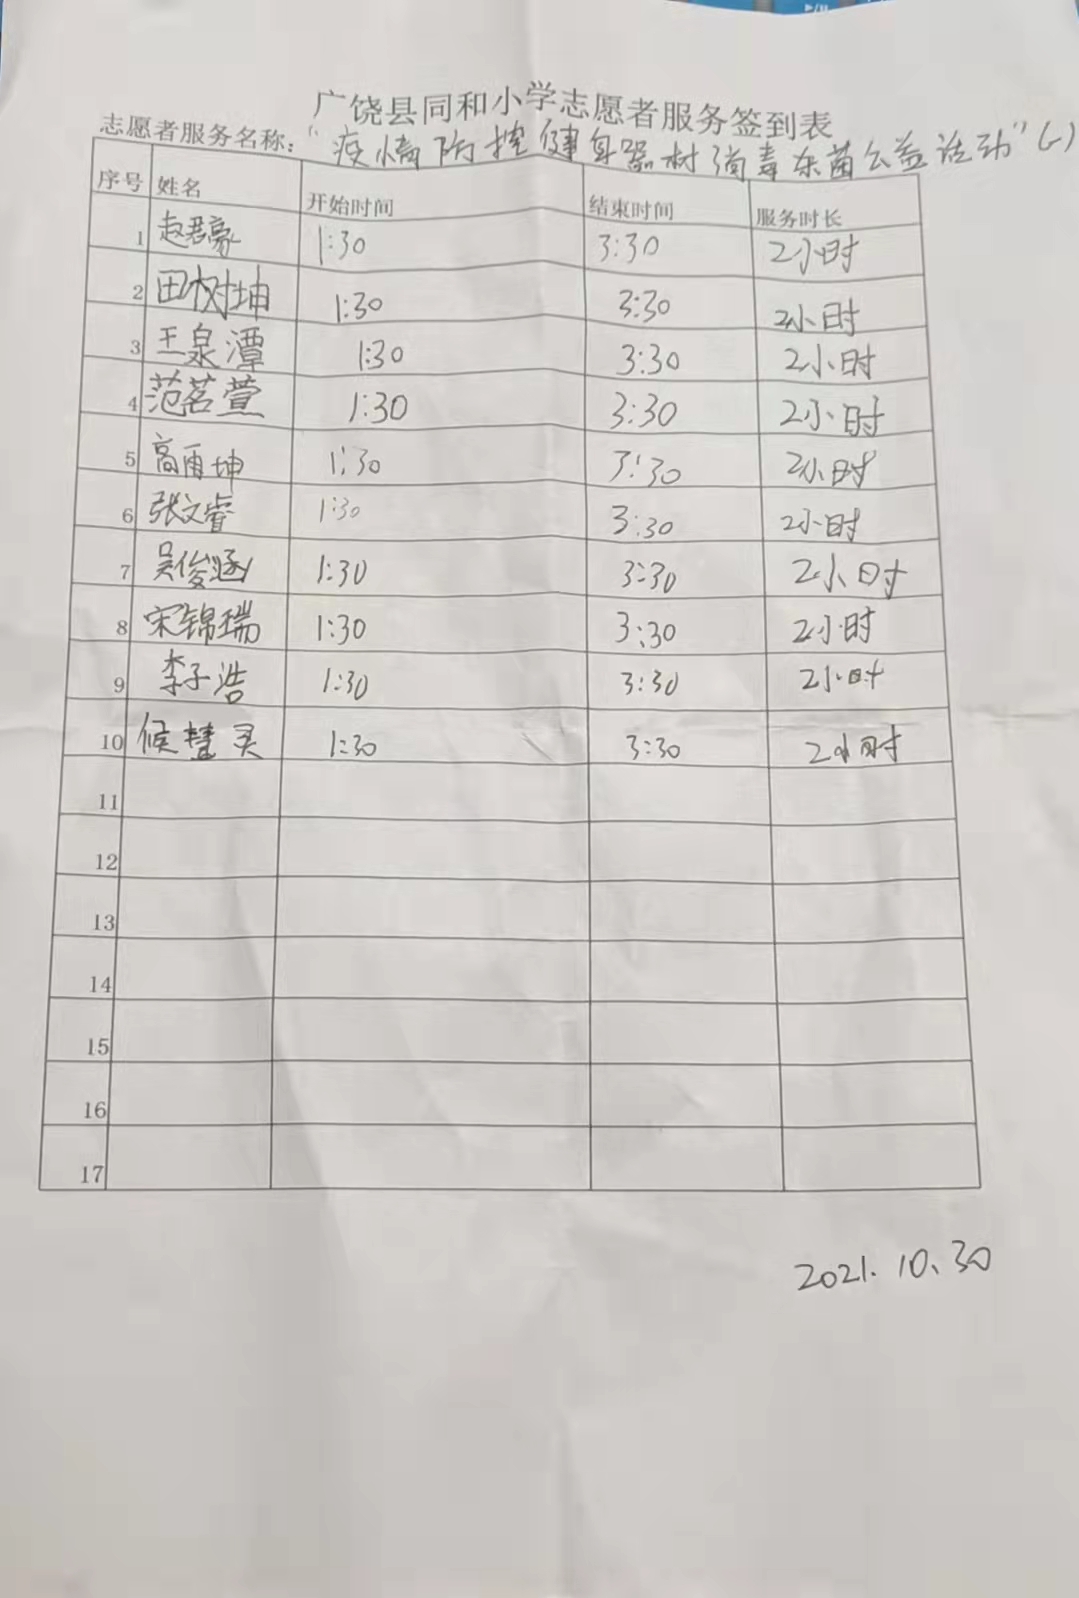 广饶县同和小学志愿者服务签到表
志愿者服务名称：“疫情防控健身器材消毒杀菌公益活动”(一)
序号 姓名 开始时间 结束时间 服务时长
1 赵君豪 1:30 3:30 2小时
2 田树坤 1:30 3:30 2小时
3 王泉潭 1:30 3:30 2小时
4 范茗萱 1:30 3:30 2小时
5 高雨坤 1:30 3:30 2小时
6 张文睿 1:30 3:30 2小时
7 吴俊涵 1:30 3:30 2小时
8 宋锦瑞 1:30 3:30 2小时
9 李子浩 1:30 3:30 2小时
10 候慧灵 1:30 3:30 2小时
11
12
13
14
15
16
17
2021.10.30